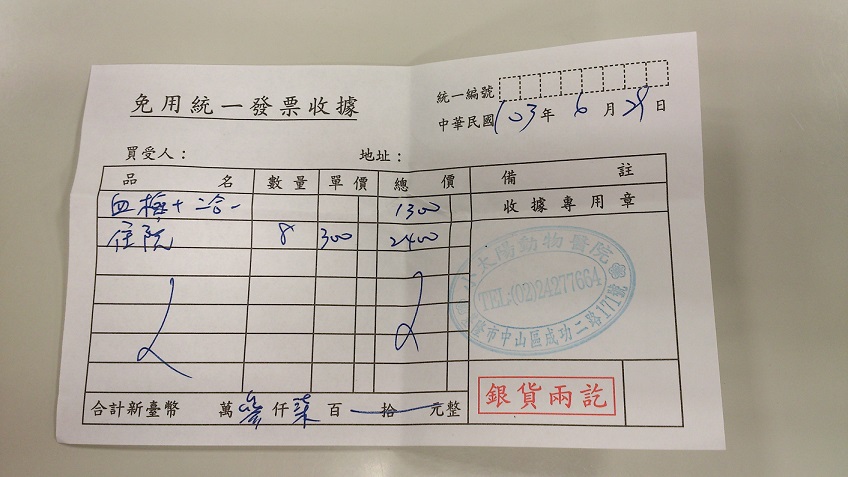 免用統一發票收據
統一編號
中華民國 103 年 6 月 29 日
買受人： 地址：
品名 數量 單價 總價 備註
血檢+二合一 1300 收據專用章
住院 8 300 2400
太陽動物醫院
TEL:(02)24277664
隆市中山區成功二路171號
合計新臺幣 萬 參 仟 柒 百 拾 元整
銀貨兩訖